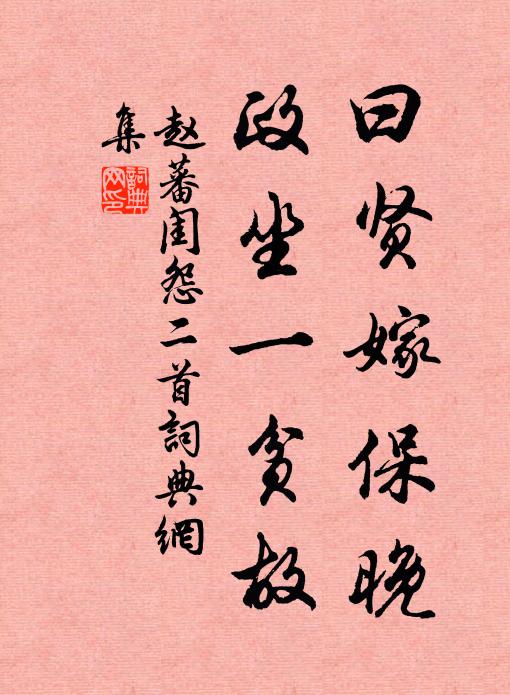 曰贤嫁保晚
政坐一贫故
赵蕃闺怨二首詞典網
集
詞典网印